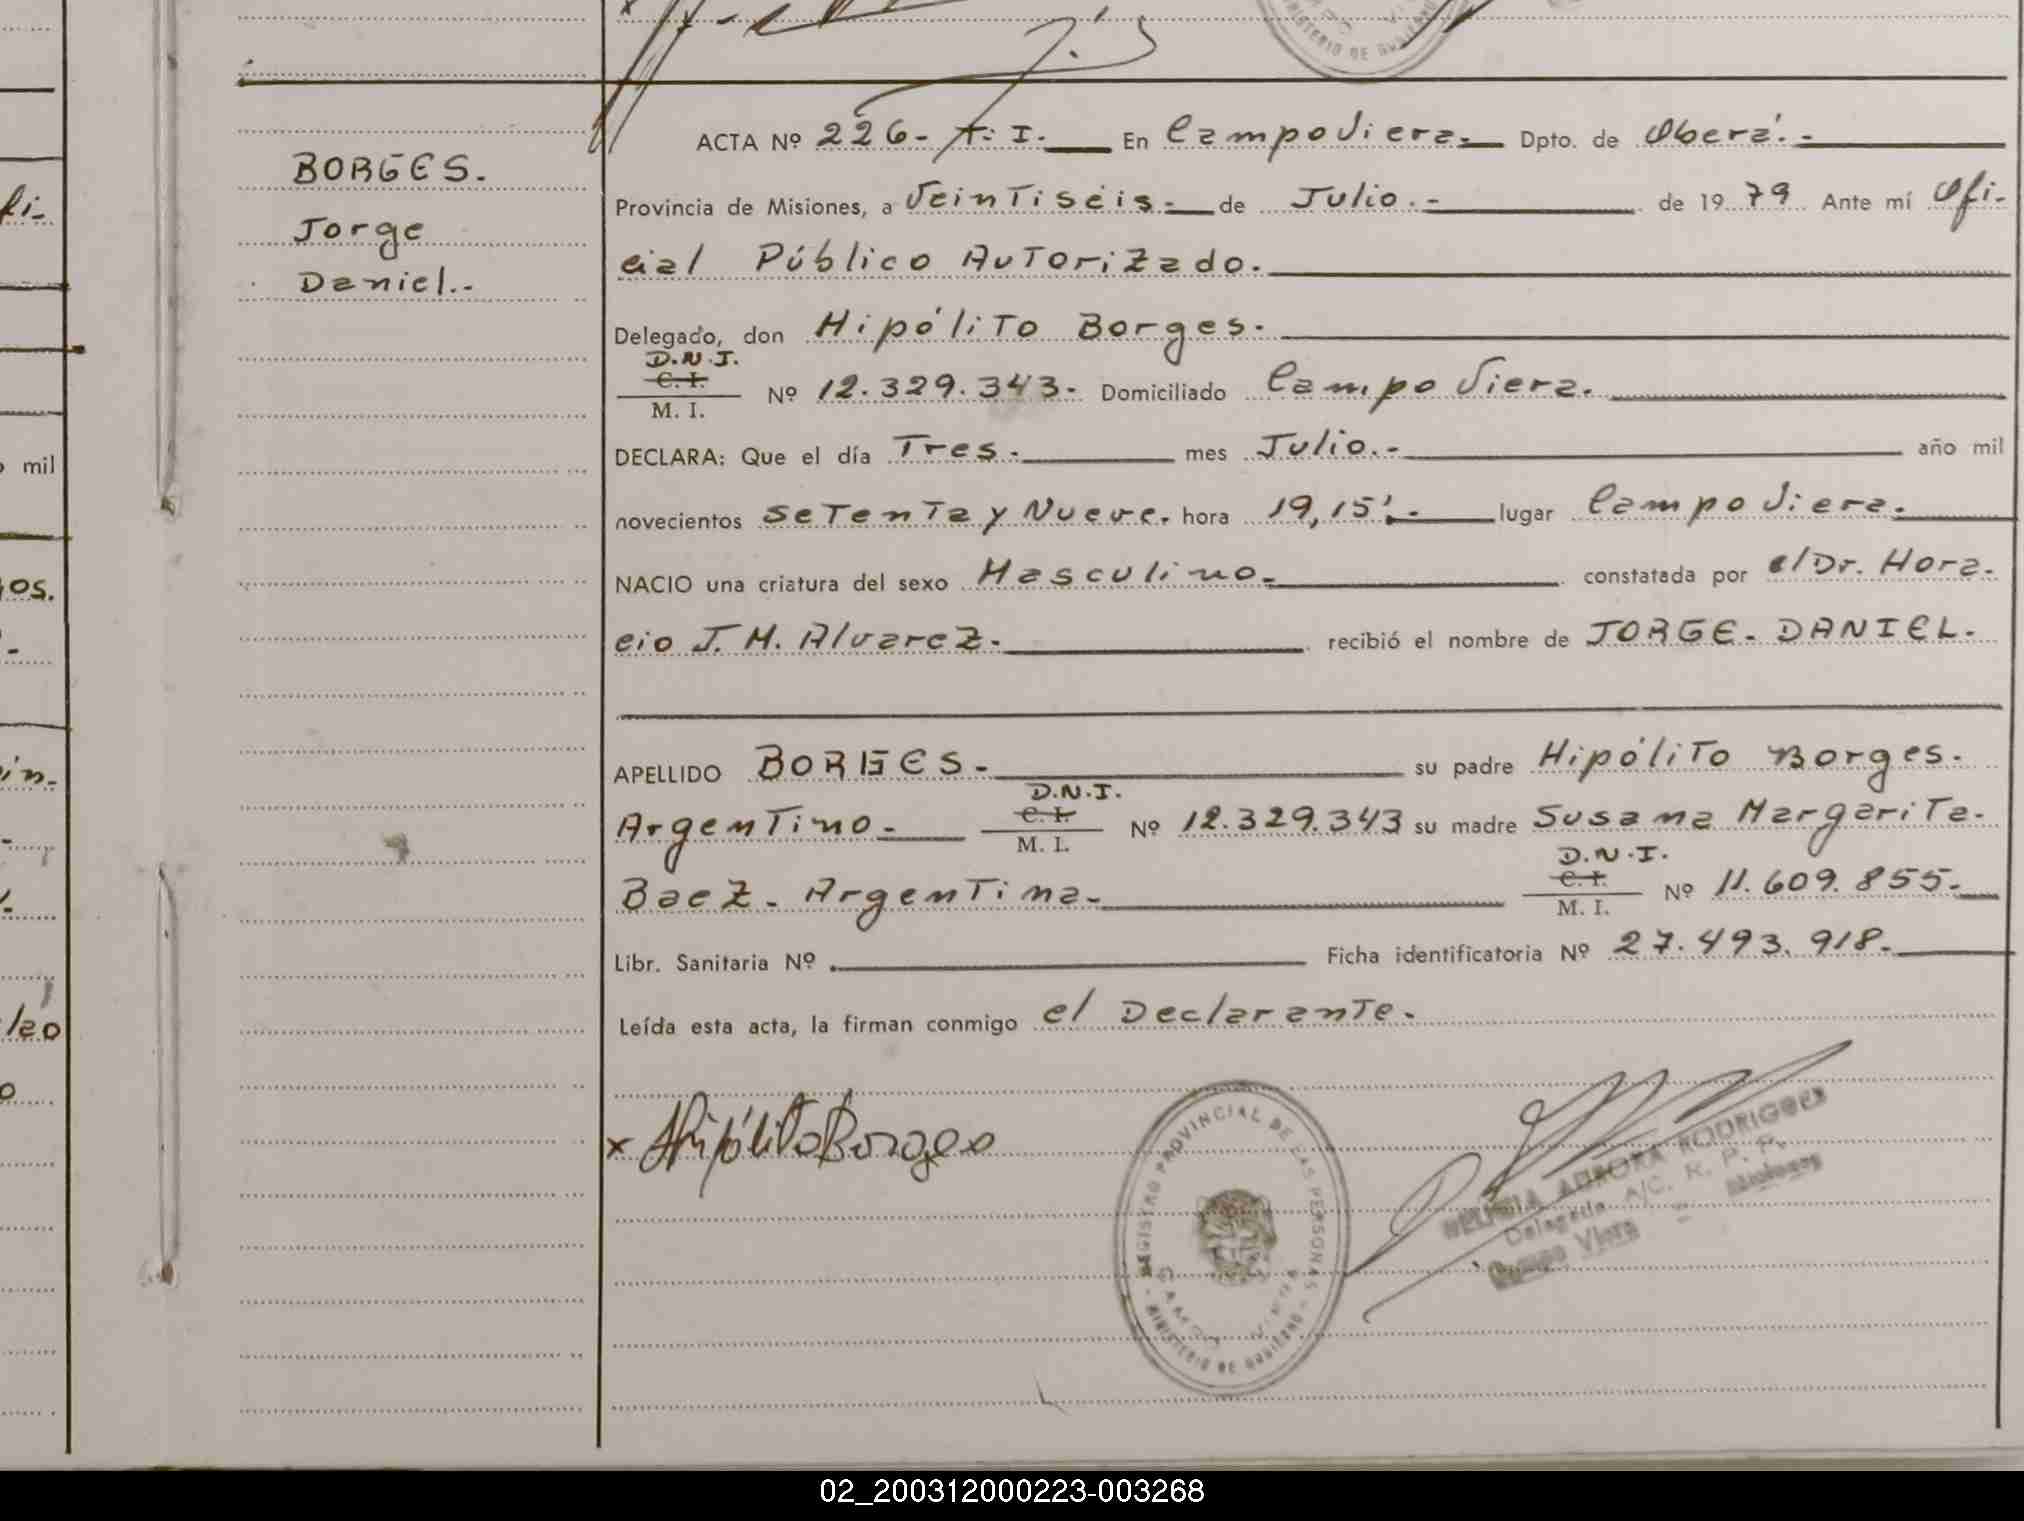 BORGES.
Jorge
Daniel.-
ACTA Nº 226- T: I. En Campo Viera. Dpto. de Oberá.-
Provincia de Misiones, a Veintiséis. de Julio.- de 1979 Ante mí Ofi-
cial Público Autorizado.
Delegado, don Hipólito Borges.
D.N.I.
C. I.
M. I.
Nº 12.329.343- Domiciliado Campo Viera.
DECLARA: Que el día Tres. mes Julio.- año mil
novecientos setenta y Nueve. hora 19,15'.- lugar Campo Viera.
NACIO una criatura del sexo Masculino. constatada por el Dr. Hora-
cio J. M. Alvarez. recibió el nombre de JORGE- DANIEL-
APELLIDO BORGES- su padre Hipólito Borges.
D.N.I.
C. I.
M. I.
Argentino- Nº 12.329.343 su madre Susana Margarita-
D.N.I.
C. I.
M. I.
Baez- Argentina- Nº 11.609.855-
Libr. Sanitaria Nº Ficha identificatoria Nº 27.493.918-
Leída esta acta, la firman conmigo el Declarante.
x Hipólito Borges
REGISTRO PROVINCIAL DE LAS PERSONAS
CAMPO VIERA
- MINISTERIO DE GOBIERNO -
AURORA RODRIGUEZ
Delegada A/C. R. P. P.
Campo Viera - Misiones
mil
02_200312000223-003268